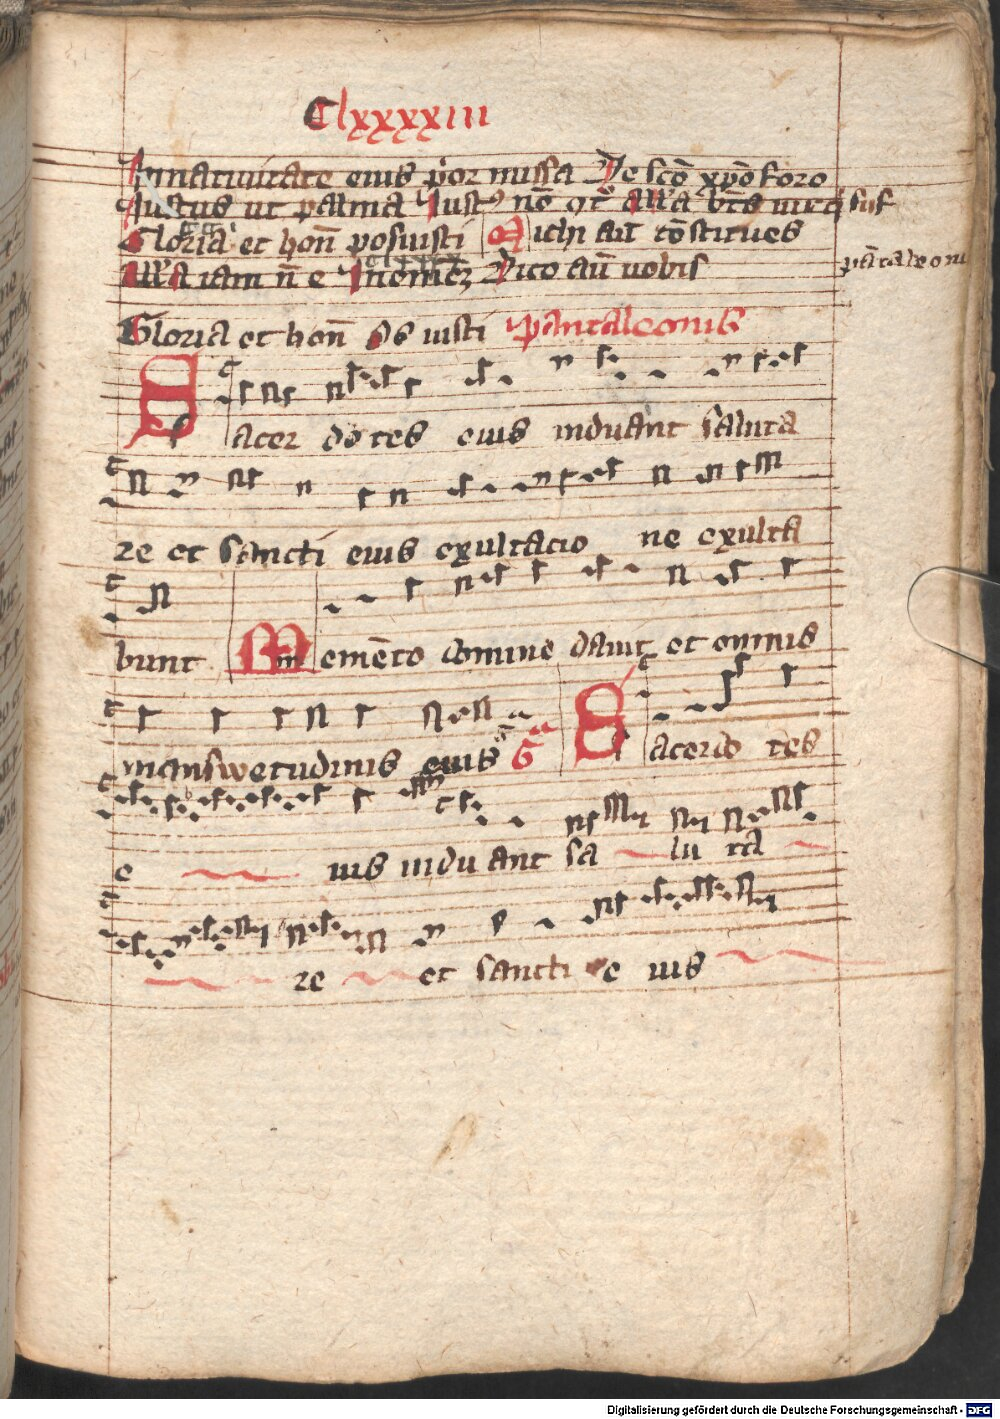 Clxxxxiii
In natiuitate eius p̄or missa De sc̄o xp̄oforo
Justus ut palma Just⁹ nō Alla b̄ts uir q suf
Gloria et hon̄ posuisti Michi aūt cōstitues
Alla iam n̄ e Inemiez Dico aū uobis
pātaleonis
Gloria et hon̄ Os iusti Pantaleonis
Sacer dotes eius induant saluta
re et sancti eius exultacio ne exulta
bunt Mm emēto domine dauit et omnis
manswetudinis eius G Sacerdo tes
e ius indu ant sa lu ta
re et sancti e ius
Digitalisierung gefördert durch die Deutsche Forschungsgemeinschaft - DFG